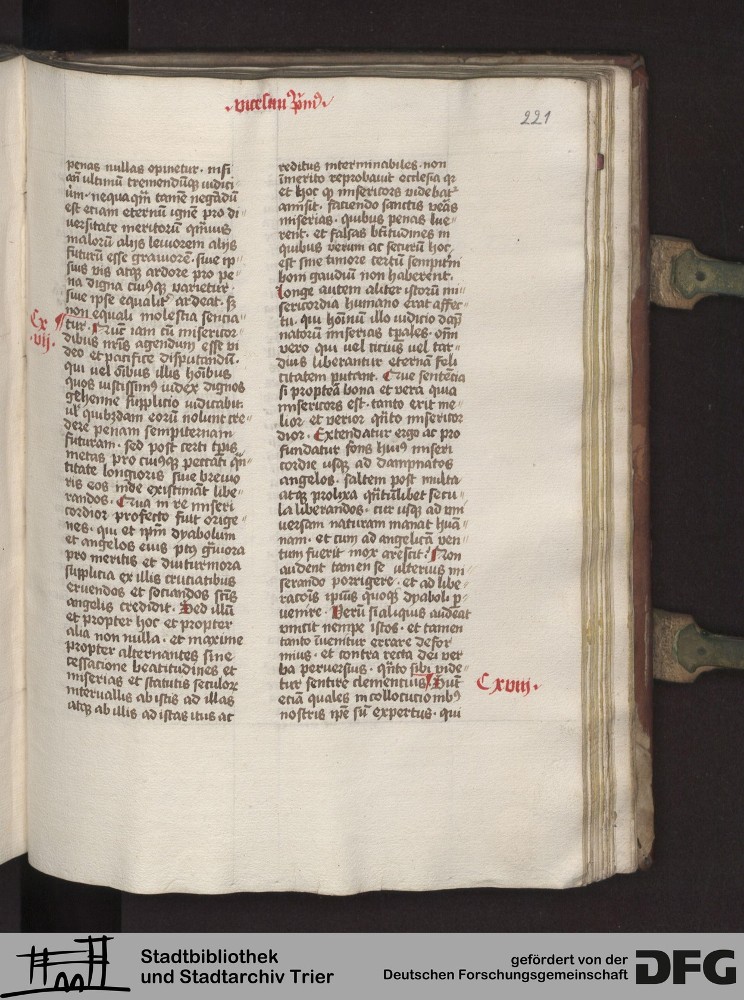 vicesimuꝰ pmꝰ
221
penas nullas opinetur · nisi
an̄ ultimū tremendūqꝫ iudici
um · nequaqꝫ tamē negādū
est etiam eternū ignē pro di
uersitate meritorū qmuis
malorū alijs leuiorem alijs
futurū esse grauiorē · siue ip
sius vis atqꝫ ardore pro pe
na digna cuiꝰqꝫ varietur
siue ipse equalit ardeat · sꝫ
non equali molestia sencia
tur · Nūc iam cū misericor
dibus nrīs agendum esse vi
deo et pacifice disputandū ·
qui vel oībus illis hoībus
quos iustissimꝰ iudex dignos
gehenne supplicio iudicabit
ul quibzdam eorū nolunt cre
dere penam sempiternam
futuram · sed post certi tpīs
metas pro cuiꝰqꝫ peccati qn̄
titate longioris siue breuio
ris eos inde existimāt libe
randos · Qua in re miseri
cordior profecto fuit orige
nes · qui et ipm̄ dyabolum
et angelos eius pꝰ gūiora
pro meritis et diuturniora
supplicia ex illis cruciatibus
eruendos et sociandos sctīs
angelis credidit · Sed illū
et propter hoc et propter
alia non nulla · et maxime
propter alternantes sine
cessatione beatitudines et
miserias et statutis seculorꝝ
interuallis ab istis ad illas
atqꝫ ab illis ad istas itus ac
Cx
vij ·
reditus interminabiles · non
īmerito reprobauit ecclesia qꝛ
et hoc qꝫ misericors videbat
amisit · faciendo sanctis veās
miserias · quibus penas lue
rent · et falsas btītudines in
quibus verum ac securū hoc
est sine timore certū sempitn̄
bom gaudiū non haberent ·
Longe autem aliter istorū mi
sericordia humano errat affec
tu · qui hoīnū illo iudicio dāp
natorū miserias tpāles · oīm
vero qui vel ticius vel tar
dius liberantur eternā feli
citatem putant · Que sentēcia
si proptea bona et vera quia
misericors est · tanto erit me
lior et verior qnto misericor
dior · Extendatur ergo ac pro
fundatur fons huiꝰ miseri
cordie usqꝫ ad dampnatos
angelos · saltem post multa
atqꝫ prolixa qn̄tūlibet secu
la liberandos · cur usqꝫ ad uni
uersam naturam manat huā
nam · et cum ad angelicā ven
tum fuerit mox arescit · Non
audent tamen se ulterius mi
serando porrigere · et ad libe
racōis ipiūs quoqꝫ dyaboli ꝑ
uenire · Verū si aliquis audeat
vincit nempe istos · et tamen
tanto īuenitur errare defor
mius · et contra recta dei ver
ba peruersius · qnto sibi vide
tur sentire clementius Sunt
etiā quales in collocutionibꝰ
nostris ipe sū expertus · qui
Cxviij ·
Stadtbibliothek
und Stadtarchiv Trier
gefördert von der
Deutschen Forschungsgemeinschaft
DFG